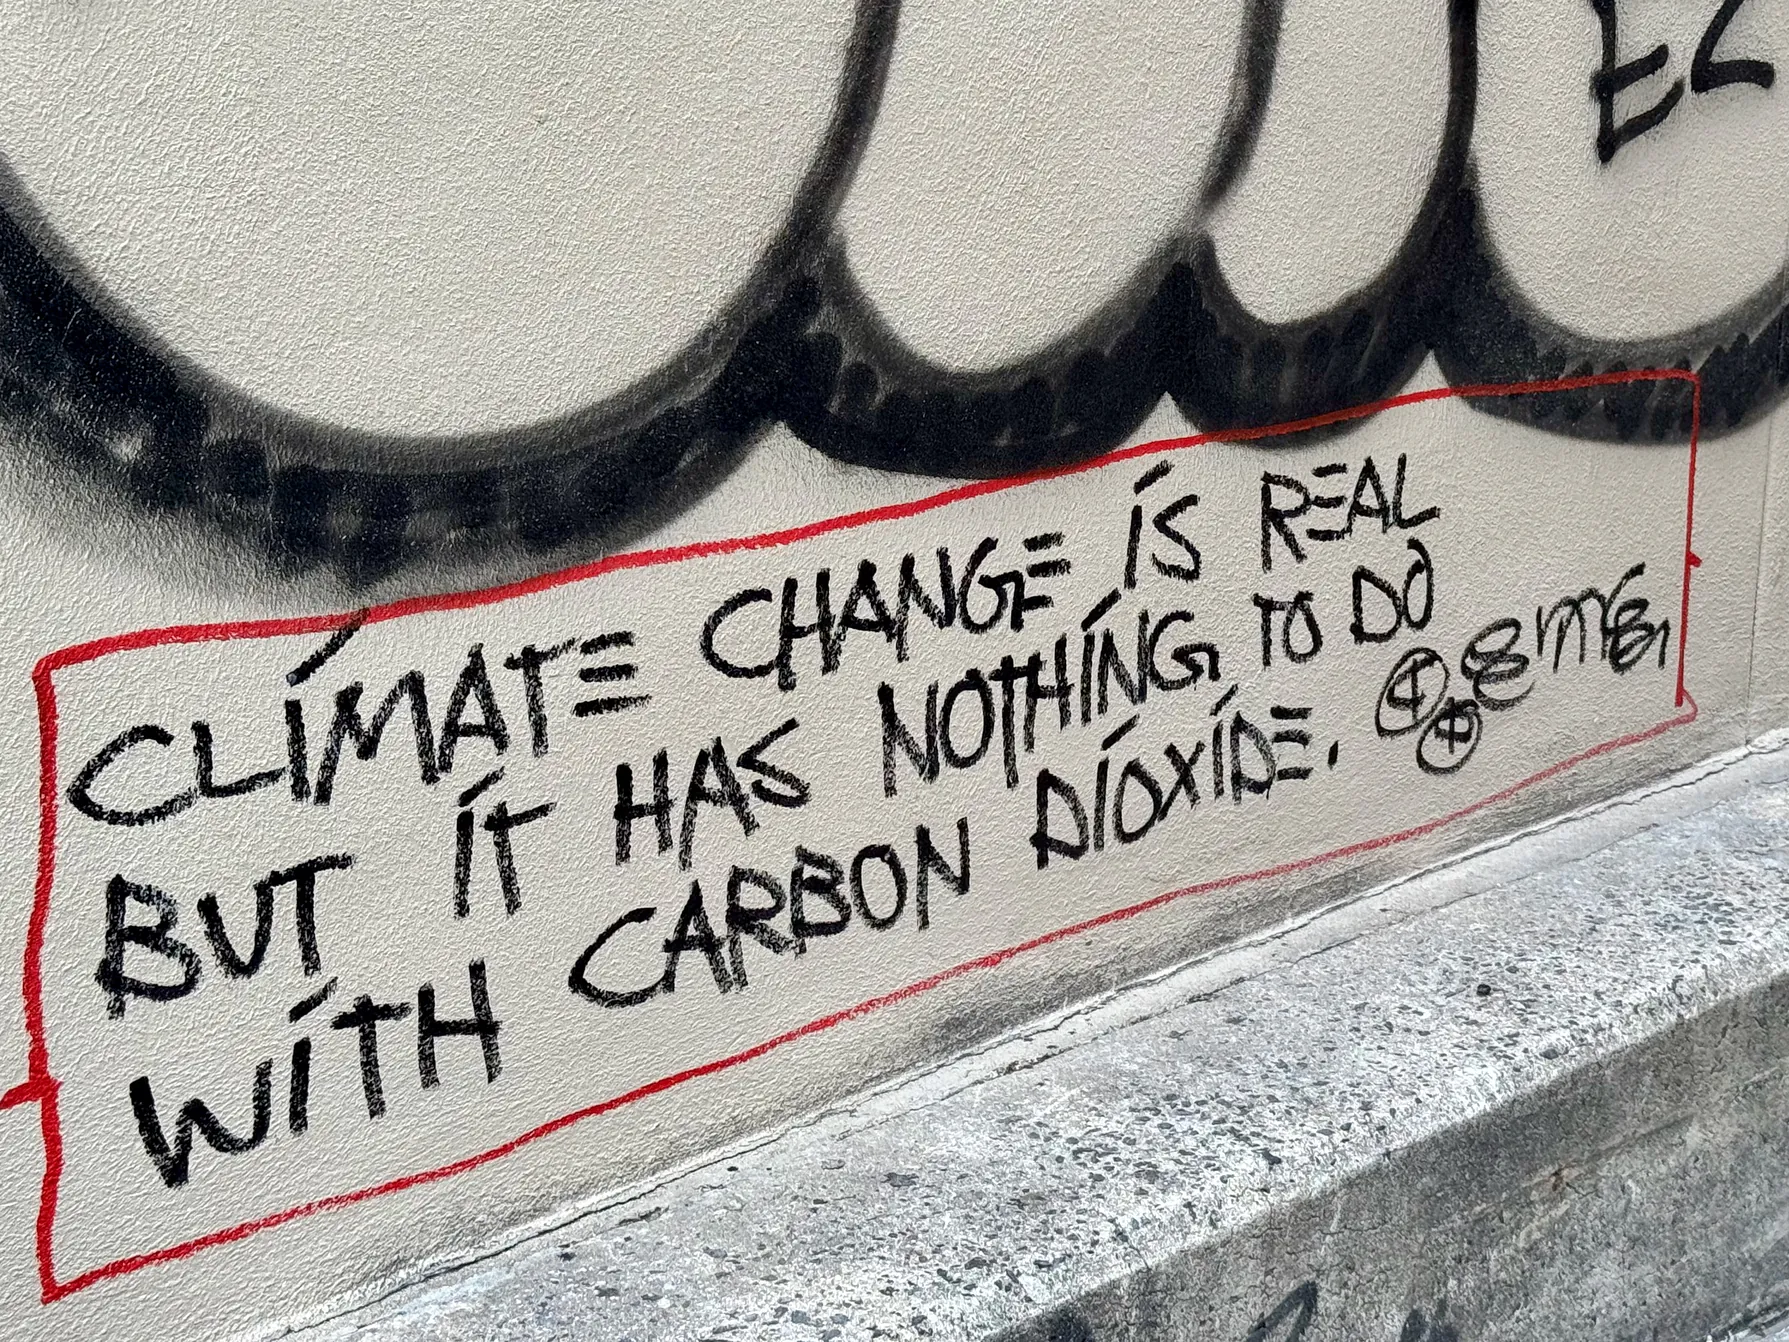 EZ
CLÍMATE CHANGE ÍS REAL
BUT ÍT HAS NOTHÍNG TO DO
WÍTH CARBON DÍOXÍDE.